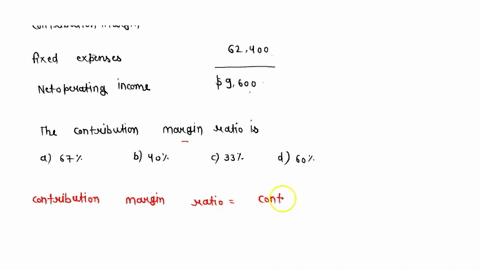 contribution margin
fixed expenses 62,400
Net operating income $9,600
The contribution margin ratio is
a) 67% b) 40% c) 33% d) 60%
contribution margin ratio = cont